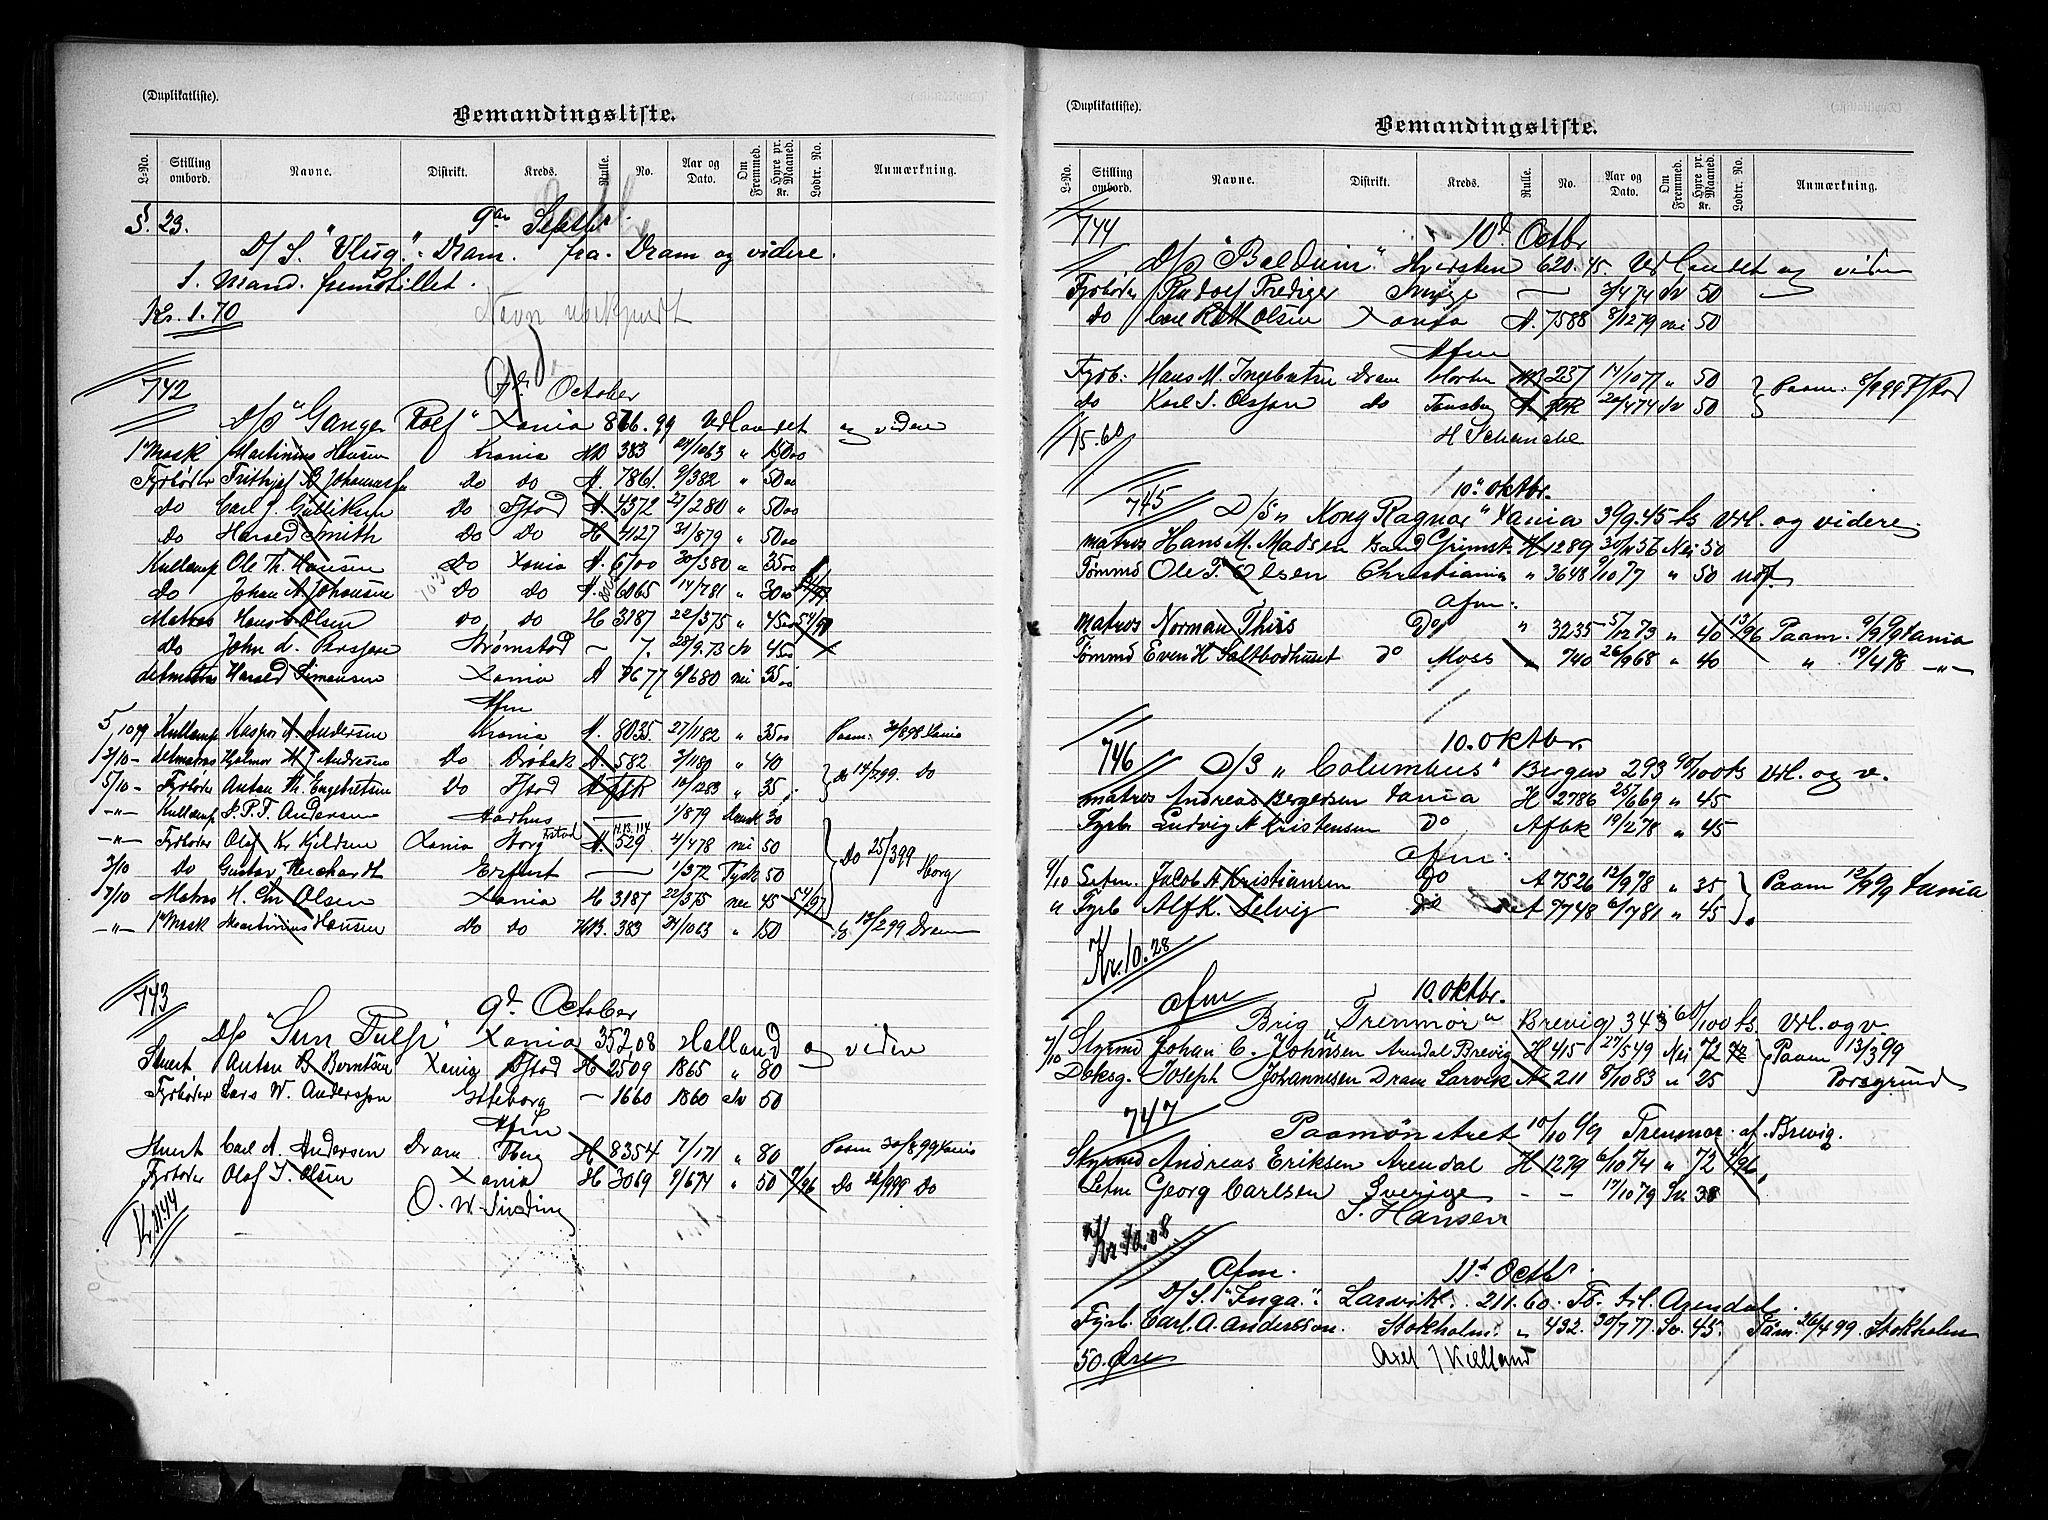 (Duplikatliste).
Bemandingsliste.
L-No. Stilling ombord. Navne. Distrikt. Kreds. Rulle. No. Aar og Dato. Om Fremmed. Hyre pr. Maaned. Kr. Lodtr. No. Anmærkning.
§. 23. 9de Septbr.
D/S. "Vlug". Dram. fra. Dram og videre.
1. Mand. fremstillet.
Kr. 1.70
742 October
D/s "Ganger Rolf" Xania 876.99 Udlandet og videre
1 Mask Martinius Hansen Xrania HB 383 24/1063 " 15000
Fyrbøder Frithjof Johannessen do do A. 7861. 9/382 " 5000
do Carl J. Gulliksen do Fstad A. 4372 27/280 " 5000
do Harald Smith Do Do H 4127 31/879 " 5000
Kullemp Ole Th. Hansen Do Xania A. 6100 30/380 " 3500
do Johan A. Johansen do do A. 6065 14/781 " 3000
Matros Hans Olsen do do H 3187 22/375 " 4500 54/97
Do John A. Persson Strømstad - 7. 28/9.73 Sv 4500
Letmatros Harald Simonsen Xania A 7677 6/680 nei 3500
Afm
5/1099 Kullemp Kaspar A. Andersen Xrania A. 8035 27/1182 " 3500 Paam. 30/898 Xania
13/10- Letmatros Hjalmar M. J. Andresen Do Drøbak A. 582 3/1180 " 40
5/10- Fyrbøder Anton M. Engebretsen Do Fstad A Afbk 10/1283 " 35 Do 17/299. Do
-"- Kullemp J.P.T. Andersen Aarhus 1/879 dansk 30
-"- Fyrbøder Olaf Kr Kjeldsen Xania Borg Fstad A. 529 4/478 nei 50
3/10 Do Gustav Reichardt Erfurt 1/372 Tysk 50 Do 25/399 Borg
7/10 Matros H. Chr Olsen Xania H 3187 22/375 nei 45 54/97
-"- 1 Mask Martinius Hansen Do Do HB. 383 24/1063 " 150 13/299 Dram
743 9d October
D/s "Sun Xania 352,08 Halland og videre
Stuert Anton B Berntsen Xania Fstad H 2509 1865 " 80
Fyrbøder Lars W. Andersson Gøteborg - 1660 1860 Sv 50
Afm
Stuert Carl A. Andersen Dram Tbeg H 8354 7/171 " 80 Paam 30/899 Xania
Fyrbøder Olaf J. Olsen Xania H 3069 9/674 " 50 7/96 Do 26/998 Do
Kr. 11.44 O. W. Sinding
(Duplikatliste).
Bemandingsliste.
L-No. Stilling ombord. Navne. Distrikt. Kreds. Rulle. No. Aar og Dato. Om Fremmed. Hyre pr. Maaned. Kr. Lodtr. No. Anmærkning.
744 10d Octbr
D/s "Balduin" 620.45 Udlandet og videre
Fyrbøder Rudolf Prediger 3/474 Sv 50
do Carl R Olsen Xania A. 7588 8/1279 nei 50
Afm
Fyrb. Hans M. Ingebretsen Dram Horten M 237 14/1071 " 50 Paam: 8/999 Fstad
do Karl S. Olsson do Tønsberg A Afbk 20/474 Sv 50
15.60 H Schanche
745 10" Oktbr.
D/S " Kong Ragnar" Xania 399.45 ts Udl. og videre.
matros Hans M. Madsen Grimst. H 1289 30/1156 Nei 50
Tømmd Ole T. Olsen Christiania " 3648 9/1077 " 50
Afm:
matros Norman Thiis Do " 3235 5/1273 " 40 13/96 Paam. 9/999 Xania
Tømmd Even H. Saltbodhuset Do Moss " 740 26/968 " 40 " 19/498 -"-
746 10. Oktbr.
D/S " Columbus" Bergen 293 90/100 ts Udl. og v.
matros Andreas Bergersen Xania H 2786 25/669 " 45
Fyrb. Ludvig A Kristensen Do Afbk 19/278 " 45
Afm:
9/10 Letm. Jacob A Kristiansen Do A 7526 12/978 " 35 Paam 12/999 Xania
" Fyrb Alf K. Delvig Do A 7748 6/781 " 45
Kr. 10.28
Afm 10. Oktbr.
Brig "Trenmor" Brevig 343 60/100 ts. Udl. og v.
7/10 Styrmd Johan C. Johnsen Arendal Brevig H 415 27/549 Nei 72 Paam 13/399
Dæksg. Joseph Johannesen Dram Larvik A 211 8/1083 " 25 Porsgrund
747 Paamønstret 10/10 99 Trenmor. af. Brevig.
Styrmd Andreas Eriksen Arendal H 1279 6/1074 " 72 /96
Letm Georg Carlsen Sverige - - 17/1079 Sv 38
S. Hansen
Kr 10.08
Afm. 11te Octbr.
D/S. "Inga". Larvik. 211.60. Ts. til. Arendal.
Fyrb. Carl. A. Andersson. Stokholm. " 432. 30/777. Sv. 45. Paam. 26/499. Stokholm
50. Øre Axel Kielland